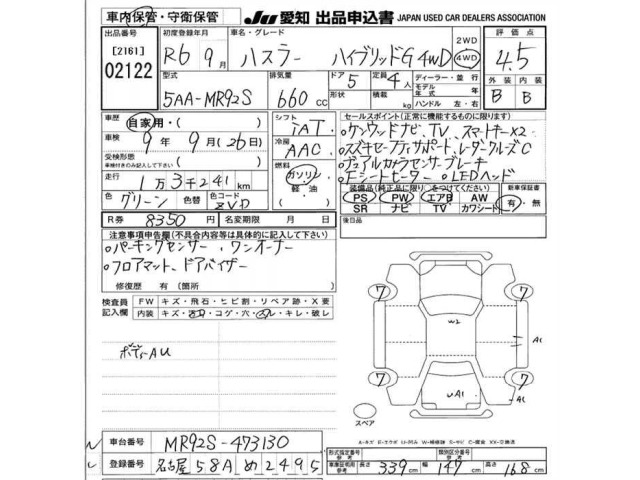 車内保管・守衛保管
JU 愛知 出品申込書 JAPAN USED CAR DEALERS ASSOCIATION
出品番号
[2161]
02122
初度登録年月
R6 9月
車名・グレード
ハスラー ハイブリッドG 4WD
2WD
4WD
評価点
4.5
型式
5AA-MR92S
排気量
660 cc
ドア
5
定員
4人
形状
積載
kg
ディーラー・並行
モデル年式 年
ハンドル 左・右
外装 内装
B B
車歴
自家用・( )
車検
9年 9月(26日)
受検形態
車検付きのみ記入して下さい
( )
走行
1万3千241km
色
グリーン
色替
色コード
ZVD
シフト
IAT
冷房
AAC
燃料
ガソリン
軽油
セールスポイント(正常に機能するものに限ります)
○ケンウッドナビ、TV、スマートキーX2
○スズキセーフティサポート、レーダークルーズC
○デュアルカメラセンサーブレーキ
○Fシートヒーター ○LEDヘッド
装備品(純正品に限り○をつけてください)
PS PW エアB AW
SR ナビ TV カワシート
新車保証書
有・無
R券 8350 名変期限 月 日
後日品
注意事項申告欄(不具合内容等は具体的に記入して下さい)
○パーキングセンサー、ワンオーナー
○フロアマット、ドアバイザー
修復歴 有〔箇所 〕
検査員記入欄
FW キズ・飛石・ヒビ割・リペア跡・X要
内装 キズ・汚れ・コゲ・穴・スレ・キレ・破レ
ボディーAU
7 7
W2
A1
7 7
UA1
スペア
A-キズ E-エクボ U-凹み W-補修跡 S-サビ C-腐食 XX-交換済
車台番号 MR92S-473130
登録番号 名古屋 58A め 2495
形式指定番号
参考
類別区分番号
参考
車検証明用
参考
長さ 339 cm 幅 147 cm 高さ 168 cm